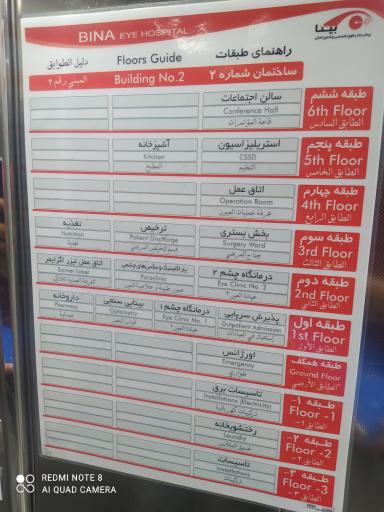 BINA EYE HOSPITAL
بینا
دليل الطوابق
Floors Guide
راهنمای طبقات
المبنی رقم ۲
Building No.2
ساختمان شماره ۲
طبقه ششم
6th Floor
الطابق السادس
سالن اجتماعات
Conference Hall
قاعة المؤتمرات
طبقه پنجم
5th Floor
الطابق الخامس
استریلیزاسیون
CSSD
التعقيم
آشپزخانه
Kitchen
المطبخ
طبقه چهارم
4th Floor
الطابق الرابع
اتاق عمل
Operation Room
غرفة عمليات العيون
طبقه سوم
3rd Floor
الطابق الثالث
بخش بستری
Surgery Ward
جناح المرضى
ترخیص
Patient Discharge
تغذیه
Nutrition
تغذية
طبقه دوم
2nd Floor
الطابق الثاني
درمانگاه چشم ۲
Eye Clinic No. 2
عيادة العين ۲
پاراکلینیک و عکس‌های چشمی
Paraclinic
اتاق عمل لیزر اگزایمر
Eximer Laser
طبقه اول
1st Floor
الطابق الاول
پذیرش سرپایی
Outpatient Admission
درمانگاه چشم ۱
Eye Clinic No. 1
عيادة العين ۱
بینایی سنجی
Optometry
داروخانه
Pharmacy
صيدلية
طبقه همکف
Ground Floor
الطابق الأرضي
اورژانس
Emergency
طوارئ
طبقه ۱-
Floor - 1
الطابق ۱-
تاسیسات برق
Installations (Electricity)
تركيبات كهربائية
طبقه ۲-
Floor -2
الطابق ۲-
رختشویخانه
Laundry
غسيل الملابس
طبقه ۳-
Floor -3
الطابق ۳-
تاسیسات
Installations
تركيبات
REDMI NOTE 8
AI QUAD CAMERA